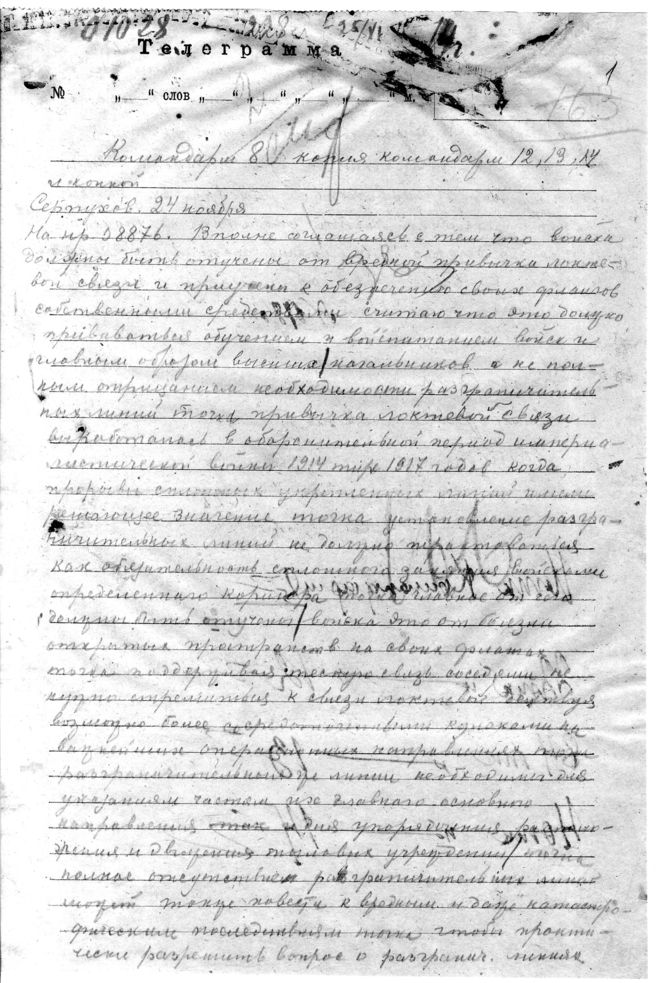 01028
25/XI
14г.
Телеграмма
1
№ „ “ слов „ “ „ “ „ “ м.
163
Командарм 8 копия командарм 12, 13, 14
и конной
Серпухов, 24 ноября
На нр 9887б. Вполне соглашаясь с тем что войска
должны быть отучены от вредной привычка локте-
вой связи и приучены к обеспечению своих флангов
собственными средствами считаю что это должно
прививаться обучением и воспитанием войск и
главным образом высших начальников а не пол-
ным отрицанием необходимости разграничитель
ных линий точка привычка локтевой связи
выработалась в оборонительной период империа-
листической войны 1914 тире 1917 годов когда
прорывы сплошных укрепленных линий имели
решающее значение точка установление разгра-
ничительных линий не должно трактоваться
как обязательность сплошного занятия войсками
определенного точка главное от чего
должны быть отучены войска это от боязни
открытых пространств на своих флангах
точка поддерживая тесную связь соседями не
нужно стремиться к связи локтевой действуя
возможно более сосредоточенными кулаками на
важнейших операционных направлениях точка
разграничительные же линии необходимы для
указания частям их главного основного
направления и для упорядочения располо-
жения и движения тыловых учреждений точка
полное отсутствием разграничительных линий
может также повести к вредным и даже катастро-
фическим последствиям точка чтобы практи-
чески разрешить вопрос о разгранич. линиях